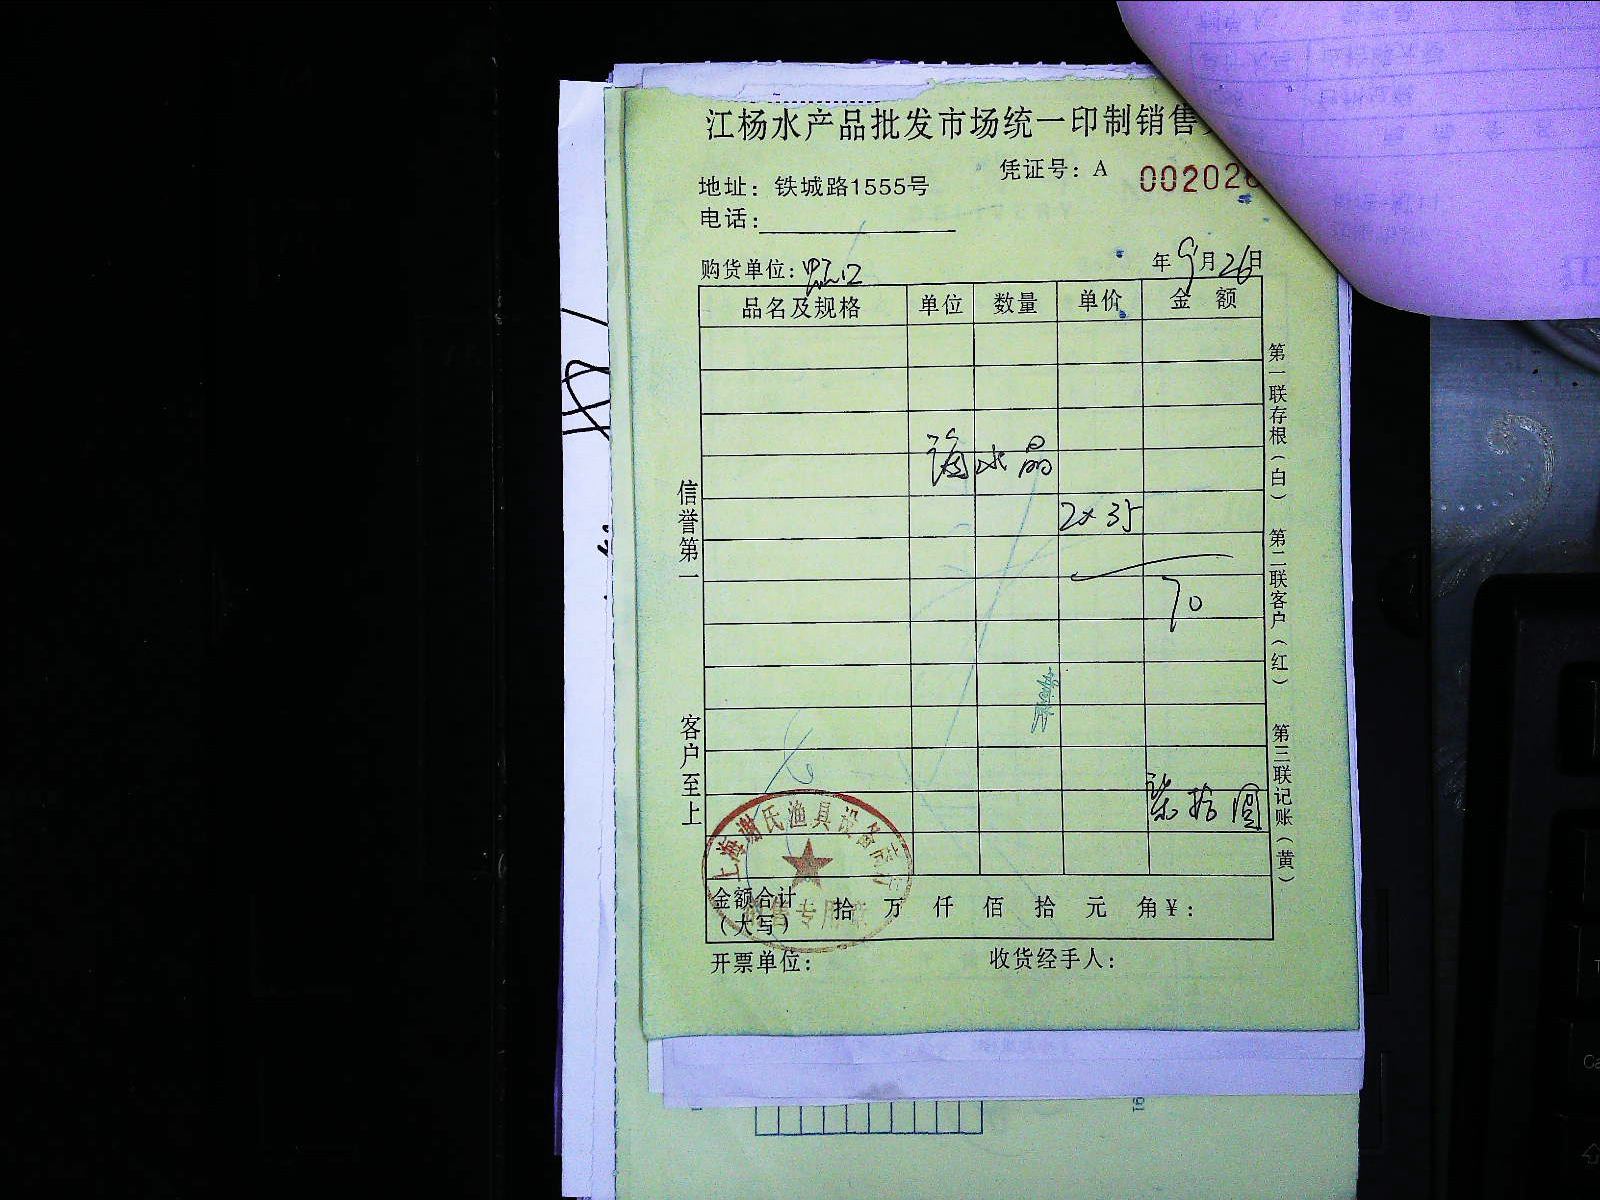 江杨水产品批发市场统一印制销售
凭证号：A 002028
地址：铁城路1555号
电话：
购货单位：虹口
年9月26日
品名及规格 单位 数量 单价 金额
海水晶
2×35
70
柒拾圆
金额合计（大写） 拾 万 仟 佰 拾 元 角 ¥：
开票单位： 收货经手人：
信誉第一
客户至上
第一联存根（白）
第二联客户（红）
第三联记账（黄）
上海谢氏渔具设备商行
销售专用章